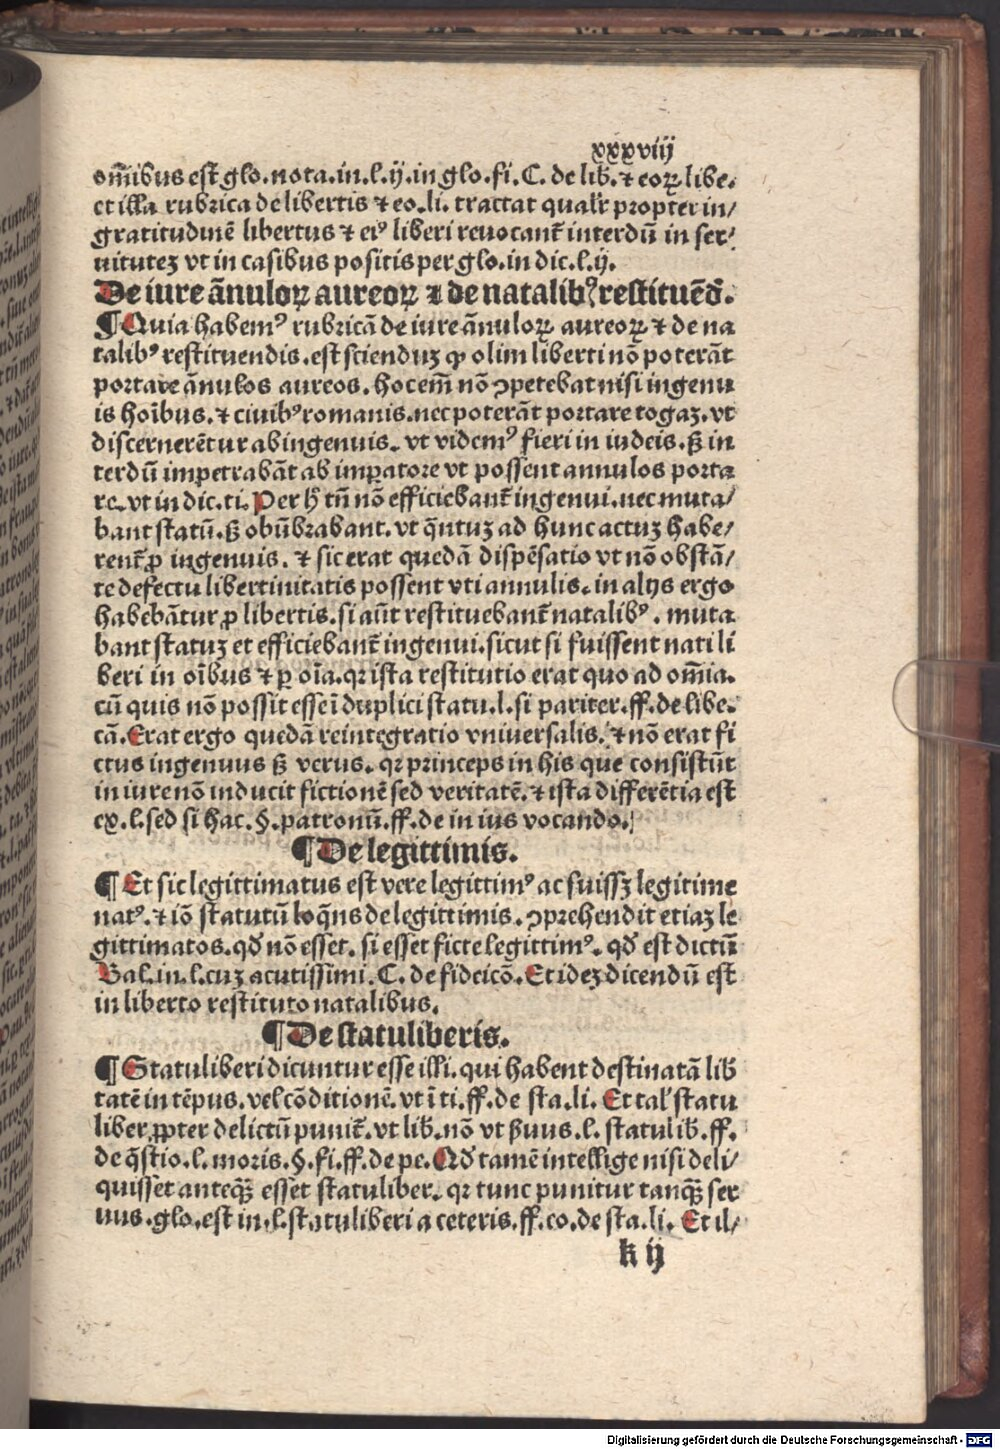 xxxviij
om̄ibus est glo. nota. in. l. ij. in glo. fi. C. de lib̄. ⁊ eoꝝ libe.
et illa rubrica de libertis ⁊ eo. li. tractat qualr̄ propter in/
gratitudinē libertus ⁊ eiꝰ liberi reuocant̄ interdū in ser/
uitutez vt in casibus positis per glo. in dic. l. ij.
De iure ānuloꝝ aureoꝝ ⁊ de natalibꝰ restituēd̄.
¶ Quia habemꝰ rubricā de iure ānuloꝝ aureoꝝ ⁊ de na
talibꝰ restituendis. est scienduz ꝙ olim liberti nō poterāt
portare ānulos aureos. hoc em̄ nō ꝯpetebat nisi ingenu
is hoībus. ⁊ ciuibꝰ romanis. nec poterāt portare togaz. vt
discernerētur ab ingenuis. vt videmꝰ fieri in iudeis. ß in
terdū impetrabāt ab imꝑatore vt possent annulos porta
re. vt in dic. ti. Per h̄ tn̄ nō efficiebant̄ ingenui. nec muta/
bant statū. ß obūbrabant. vt q̄ntuz ad hunc actuz habe/
rent̄ ꝓ ingenuis. ⁊ sic erat quedā dispēsatio vt nō obstā/
te defectu libertinitatis possent vti annulis. in alijs ergo
habebātur ꝓ libertis. si aūt restituebant̄ natalibꝰ. muta
bant statuz et efficiebant̄ ingenui. sicut si fuissent nati li
beri in oībus ⁊ ꝑ oīa. qꝛ ista restitutio erat quo ad om̄ia.
cū quis nō possit esse ī duplici statu. l. si pariter. ff. de libe.
cā. Erat ergo quedā reintegratio vniuersalis. ⁊ nō erat fi
ctus ingenuus ß verus. qꝛ princeps in his que consistūt
in iure nō inducit fictionē sed veritatē. ⁊ ista differētia est
ex. l. sed si hac. §. patronū. ff. de in ius vocando.
¶ De legittimis.
¶ Et sic legittimatus est vere legittimꝰ ac si fuissz legitime
natꝰ. ⁊ iō statutū loq̄ns de legittimis. ꝯprehendit etiaz le
gittimatos. qd̄ nō esset. si esset ficte legittimꝰ. qd̄ est dictū
Bal. in. l. cuz acutissimi. C. de fideicō. Et idez dicendū est
in liberto restituto natalibus.
¶ De statuliberis.
¶ Statuliberi dicuntur esse illi. qui habent destinatā lib̄
tatē in tēpus. vel cōditionē. vt ī ti. ff. de sta. li. Et tal̄ statu
liber ꝓpter delictū punit̄. vt lib̄. nō vt ßuus. l. statulib̄. ff.
de q̄stio. l. moris. §. fi. ff. de pe. Qd̄ tamē intellige nisi deli/
quisset anteqꝫ̄ esset statuliber. qꝛ tunc punitur tanqꝫ̄ ser
uus. glo. est in. l. statuliberi a ceteris. ff. eo. de sta. li. Et il/
k ij
Digitalisierung gefördert durch die Deutsche Forschungsgemeinschaft - DFG